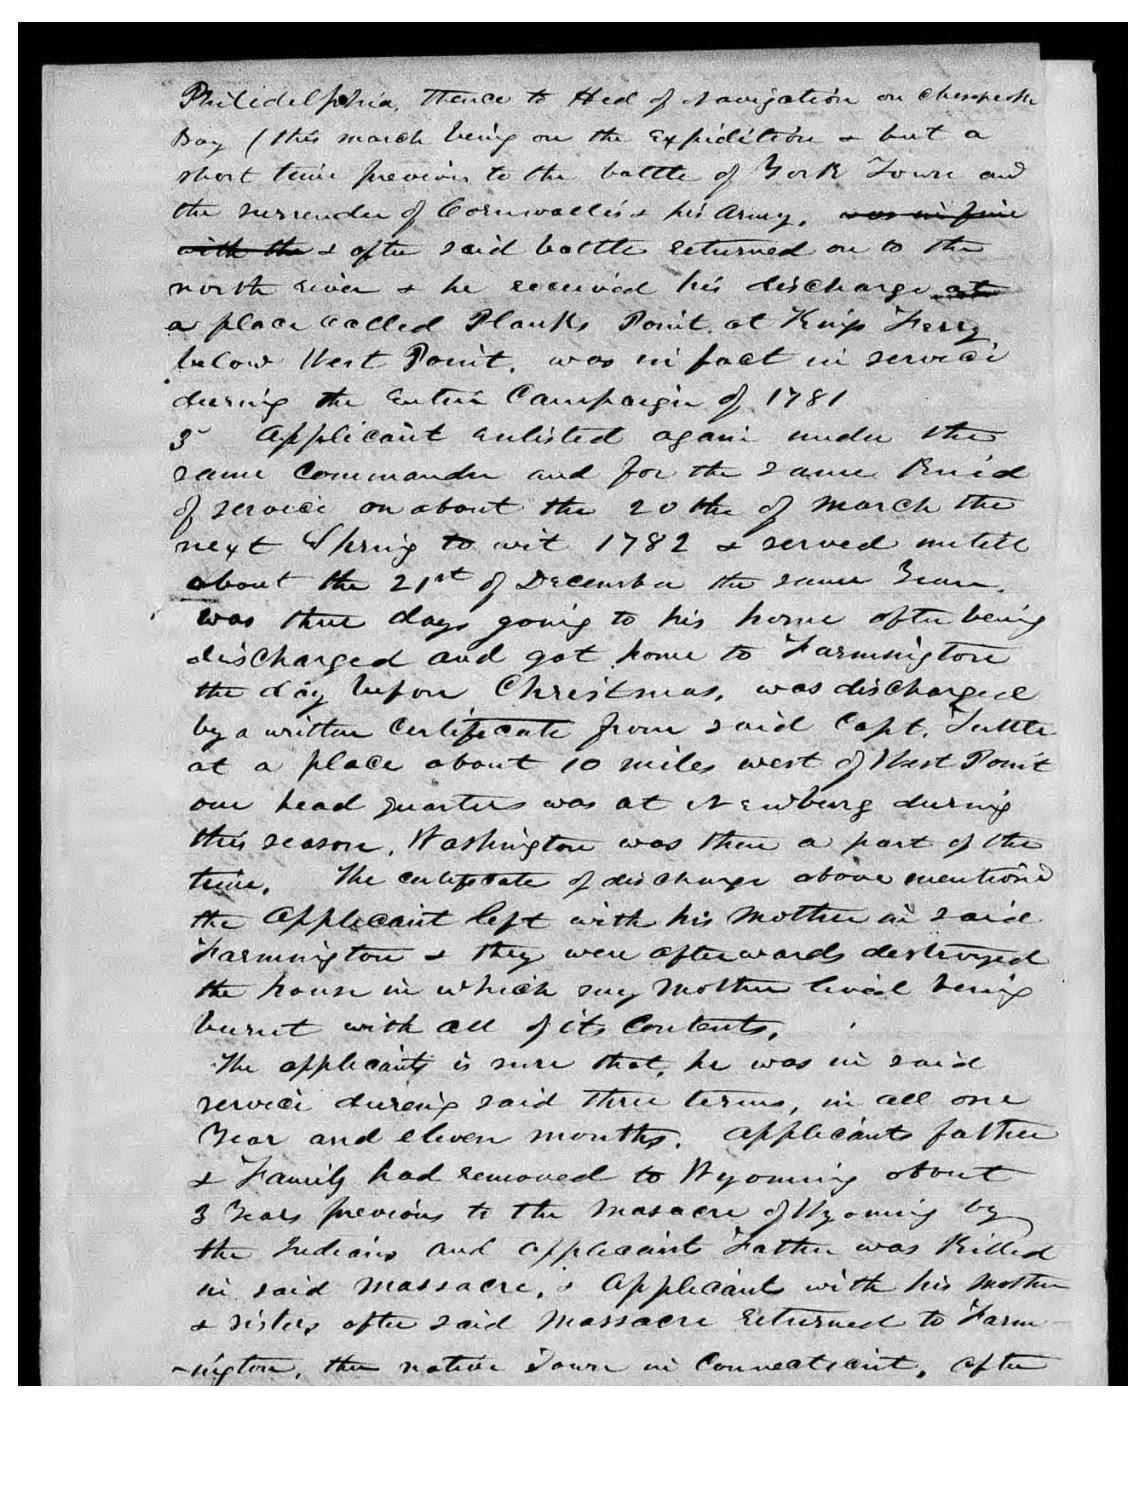 Philidelphia, thence to Hed of Navigation on Chesepeake
Bay (this march being on the Expidition & but a
short time previous to the battle of York Town and
the surrender of Cornwallis & his Army, was in fine
with the & after said battle returned on to the
north river & he received his discharge at
a place called Planks Point at Kings Ferry
below West Point, was in fact in service
during the Entire Campaign of 1781
3 Applicant enlisted again under the
same Commander and for the same Period
of service on about the 20th of March the
next Spring to wit 1782 & served untill
about the 21st of December the same Year.
was three days going to his home after being
discharged and got home to Farmington
the day before Christmas, was discharged
by a written Certificate from said Capt. Tuttle
at a place about 10 miles west of West Point
our head quarters was at Newburg during
this season, Washington was there a part of the
time. The certificate of discharge above mentiond
the Applicant left with his Mother in said
Farmington & they were afterwards destroyed
the house in which my Mother lived being
burnt with all of its Contents,
The applicant is sure that he was in said
service during said three terms, in all one
Year and eleven months. Applicants father
& Family had removed to Wyoming about
3 Years previous to the Masacre of Wyoming by
the Indians and applicant Father was Killed
in said Massacre, & Applicant with his Mother
& sisters after said Massacre returned to Farm-
-ington, the native Town in Connecticut, after